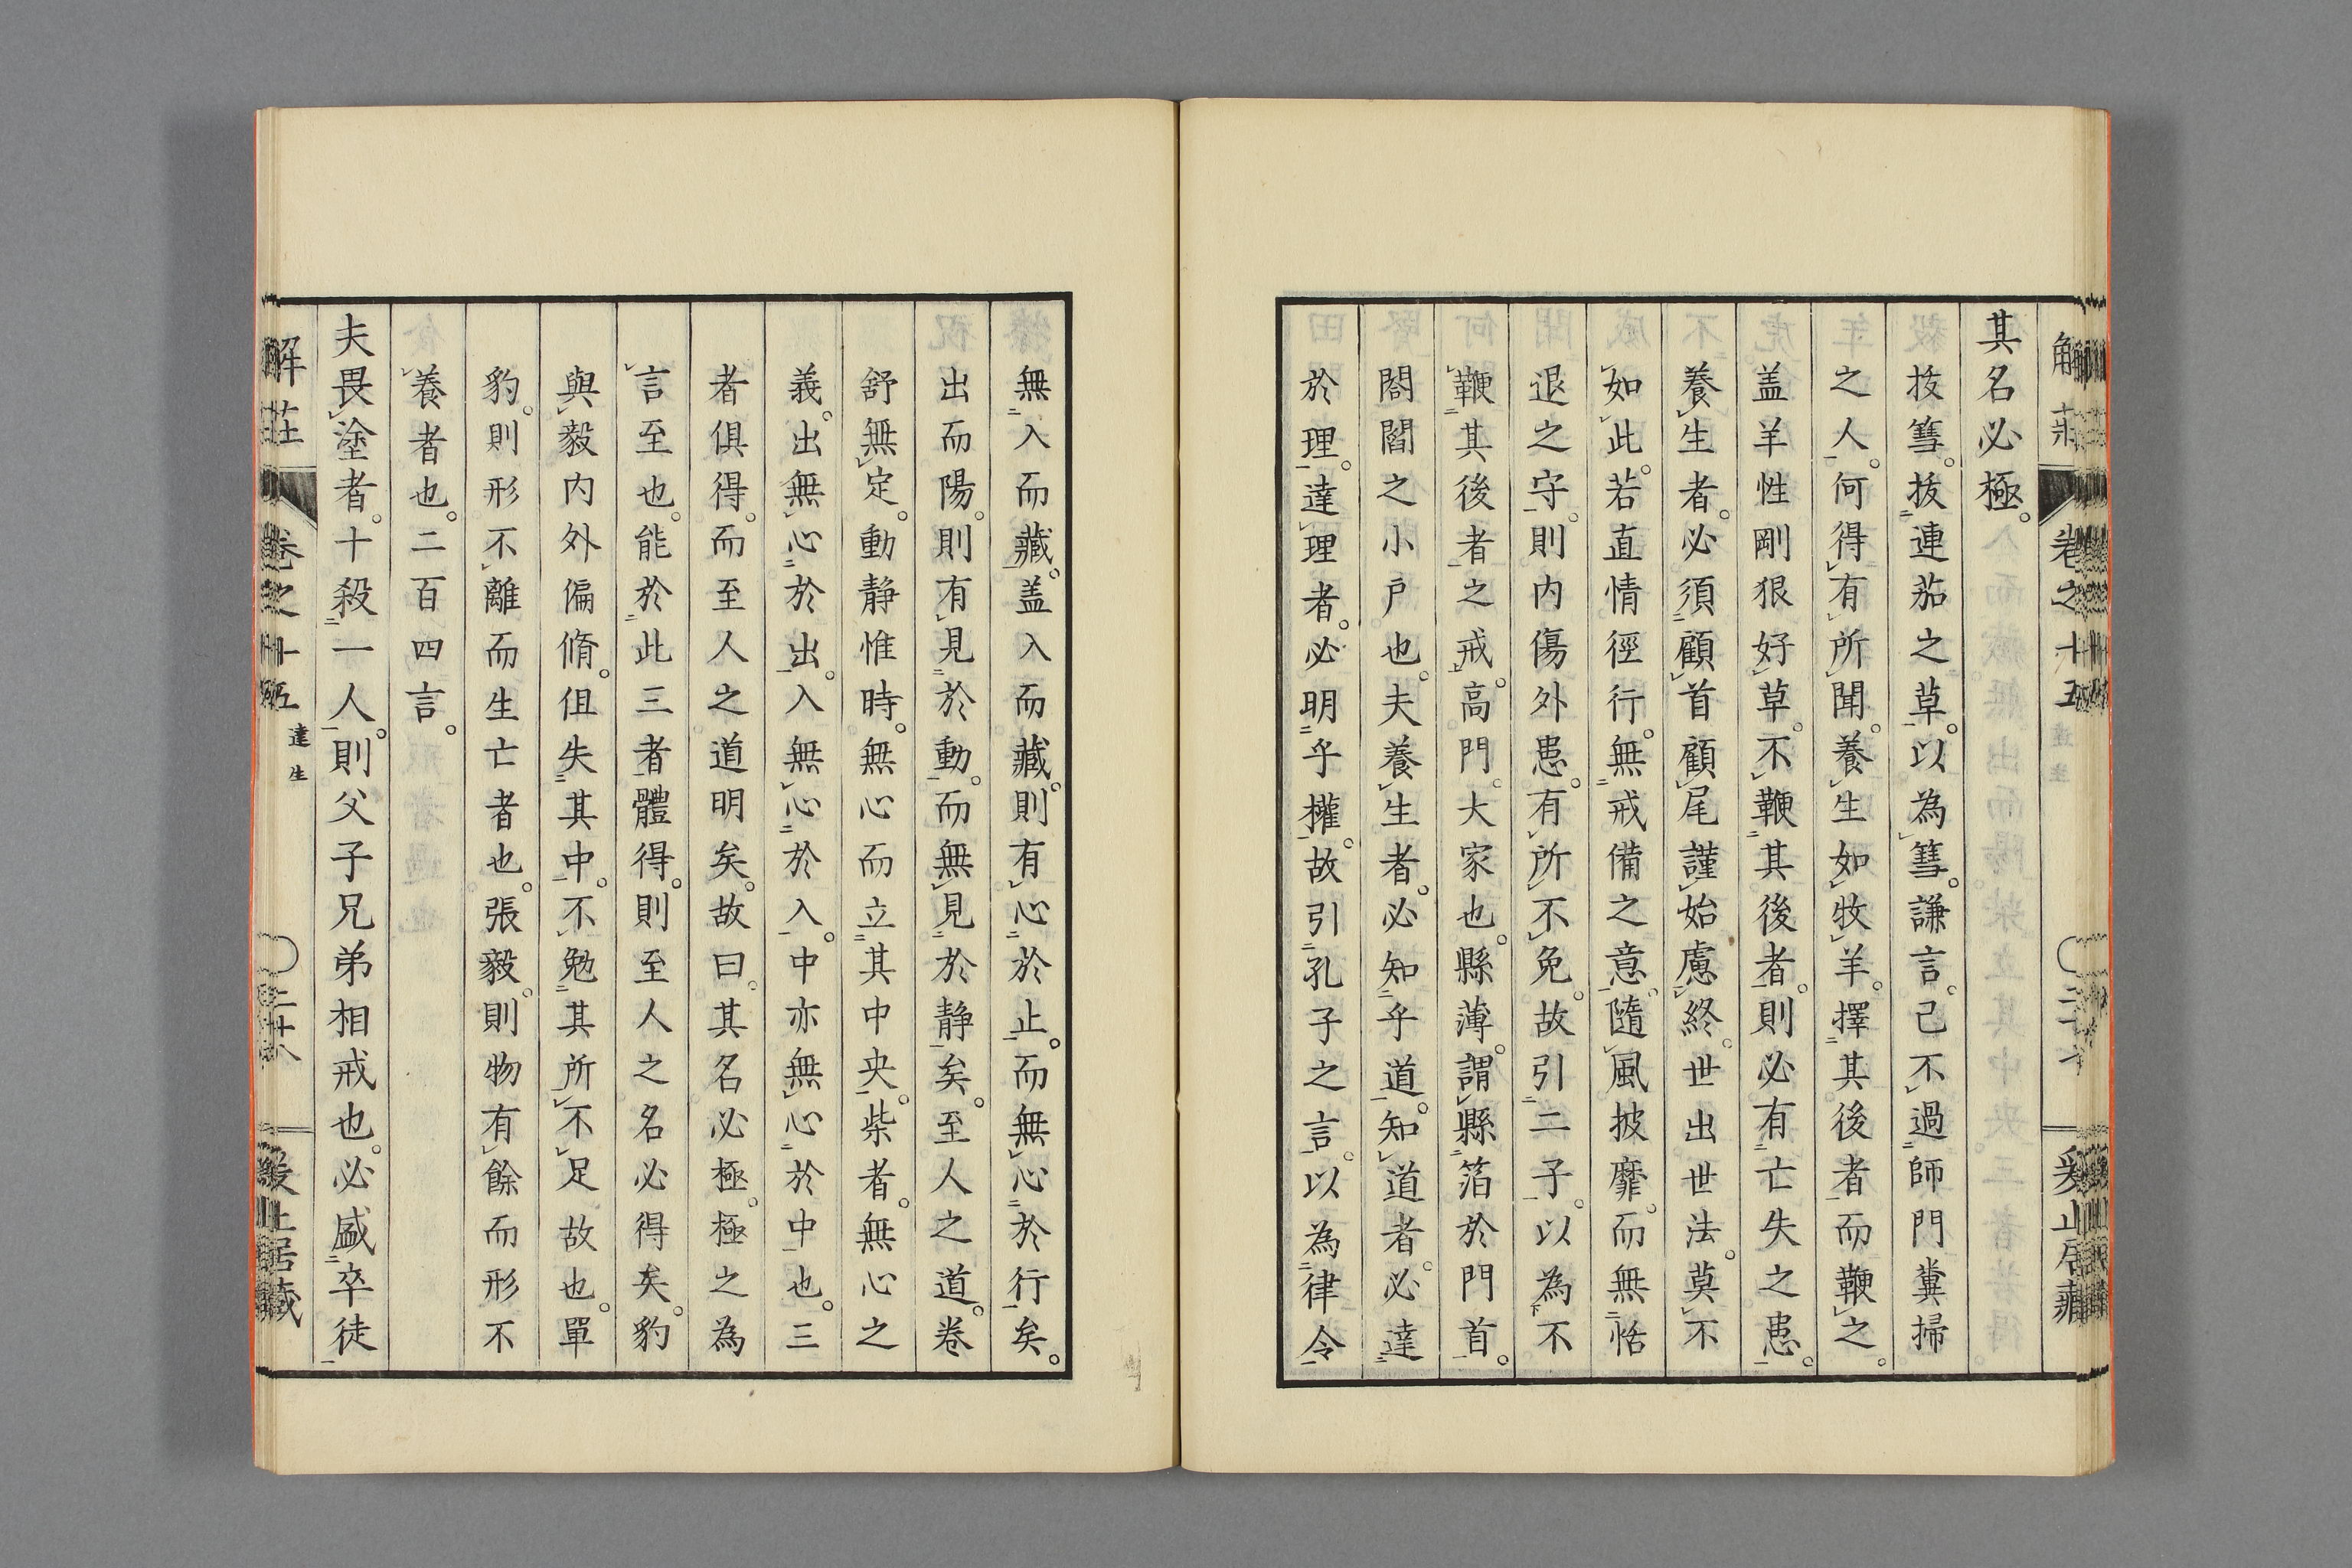 其名必極。
拔篲。拔連茹之草。以為篲。謙言。己不過師門糞掃
之人。何得有所聞。養生如牧羊。擇其後者而鞭之。
盖羊性剛狠好草。不鞭其後者。則必有亡失之患。
養生者。必須顧首顧尾謹始慮終。世出世法。莫不
如此。若直情徑行。無戒備之意。隨風披靡。而無恬
退之守。則内傷外患。有所不免。故引二子。以為不
鞭其後者之戒。高門。大家也。縣薄。謂縣箔於門首。
閤閣之小戶也。夫養生者。必知乎道。知道者。必達
於理。達理者。必明乎權。故引孔子之言。以為律令
無入而藏。盖入而藏。則有心於止。而無心於行矣。
出而陽。則有見於動。而無見於静矣。至人之道。卷
舒無定。動静惟時。無心而立其中央。柴者。無心之
義。出無心於出。入無心於入。中亦無心於中也。三
者俱得。而至人之道明矣。故曰。其名必極。極之為
言至也。能於此三者體得。則至人之名必得矣。豹
與毅内外偏脩。但失其中。不勉其所不足故也。單
豹。則形不離而生亡者也。張毅。則物有餘而形不
養者也。二百四言。
夫畏塗者。十殺一人。則父子兄弟相戒也。必盛卒徒
解莊 卷之十五 達生